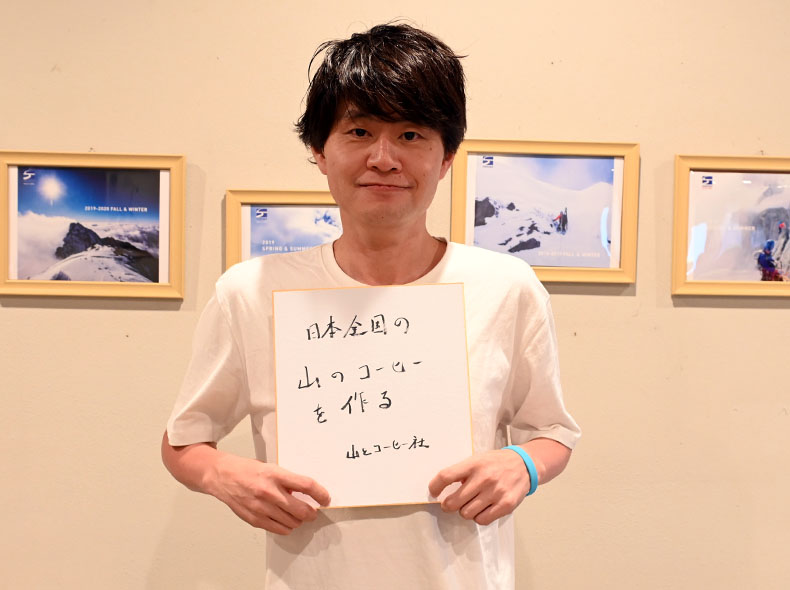 2019-2020 FALL & WINTER
2019
SPRING & SUMMER
日本全国の
山のコーヒー
を作る
山とコーヒー社